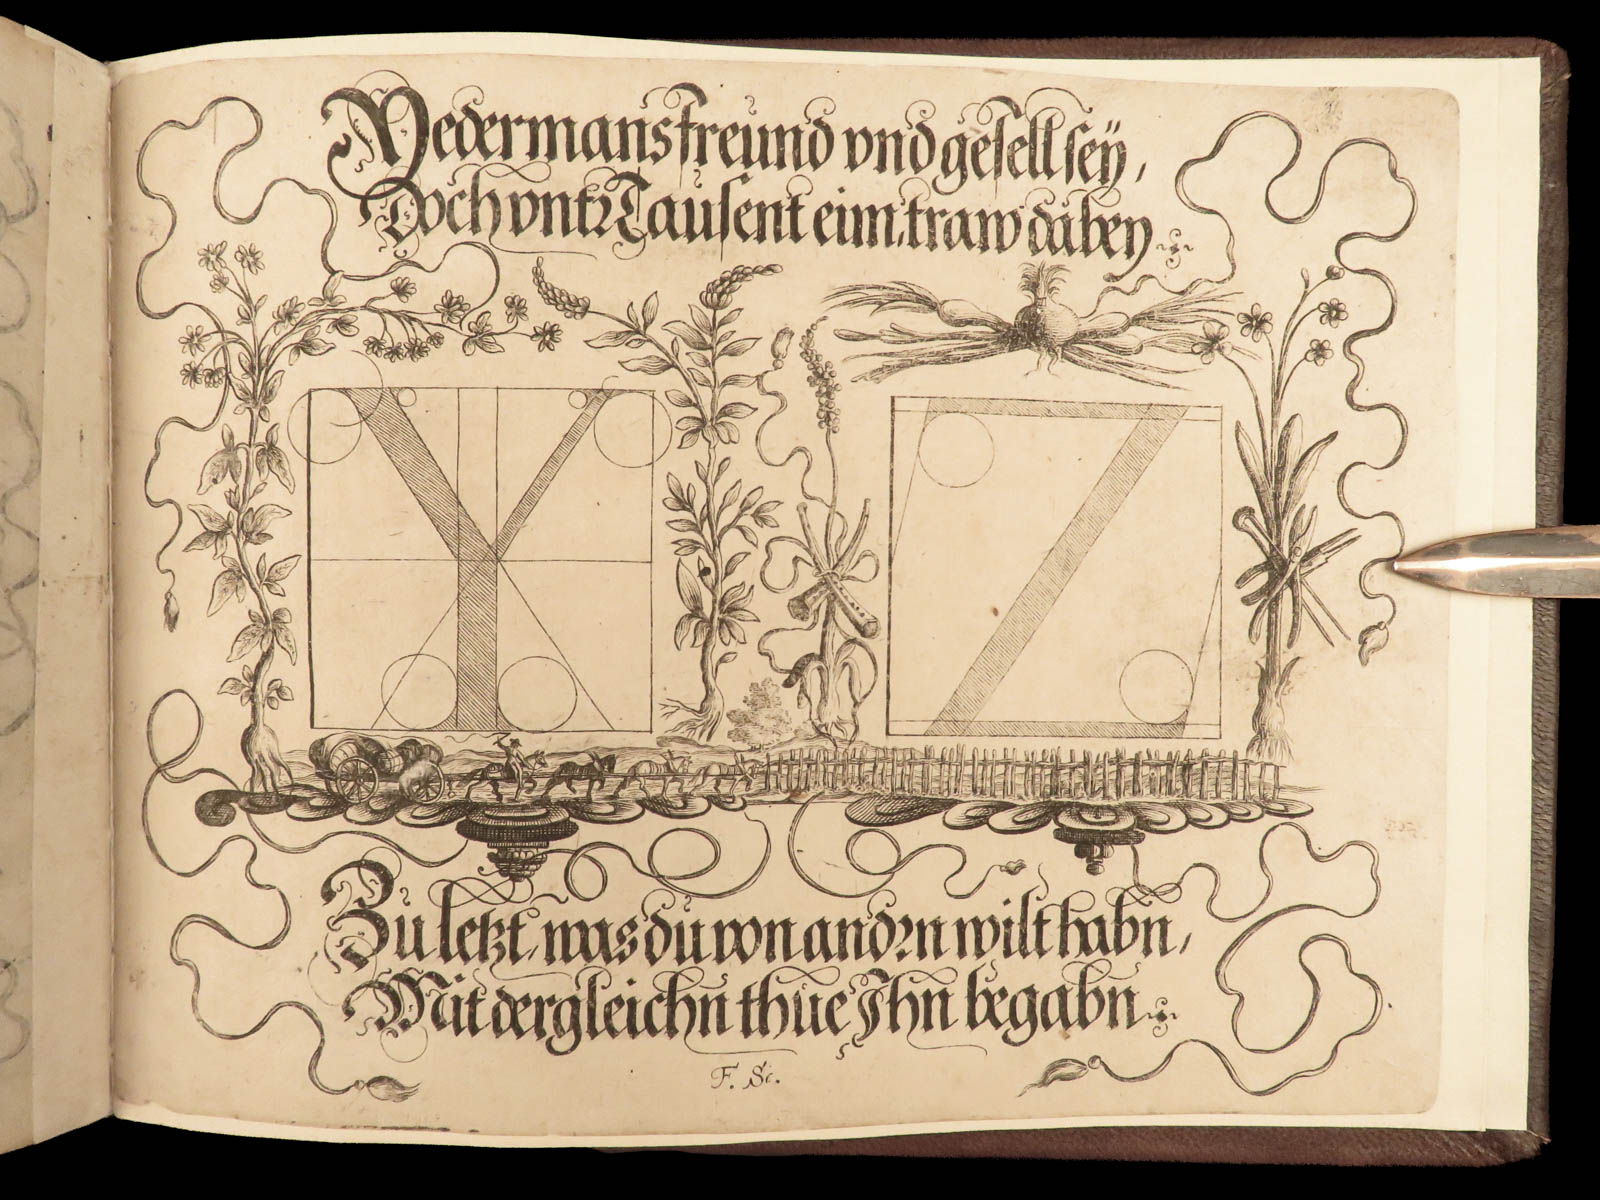 Yedermans freund vnd gesell seÿ,
Doch vntr Tausent eim traw dabey
Y Z
Zu letzt, was du von andrn wilt habn,
Mit dergleichn thue Ihn begabn
F. Sc.